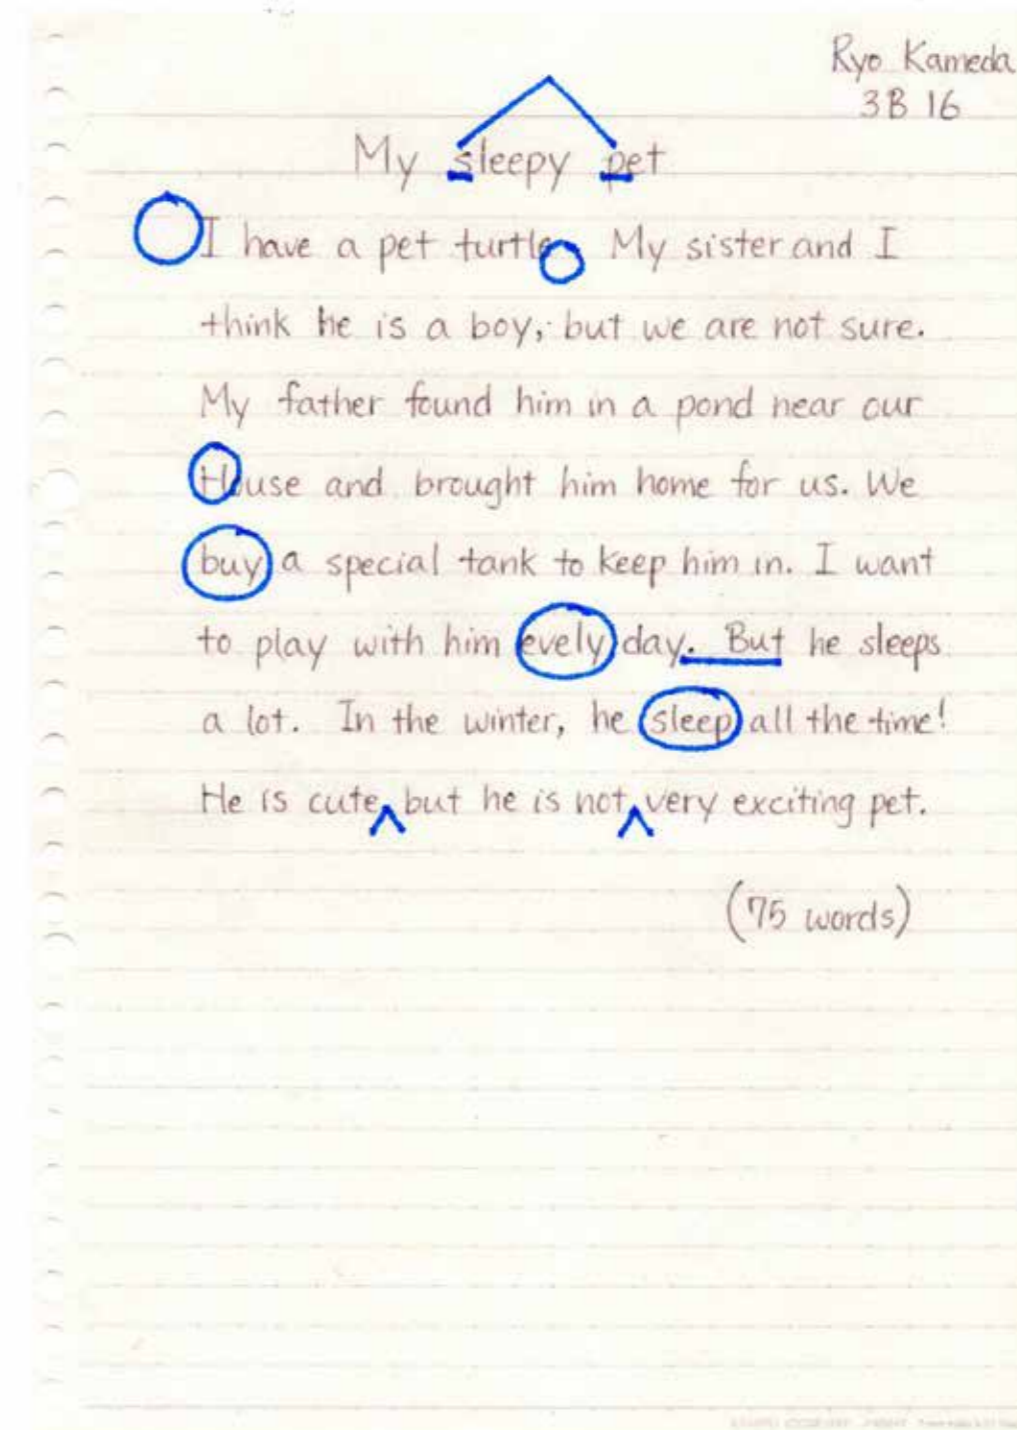 Ryo Kameda
3B 16
My sleepy pet
I have a pet turtle My sister and I
think he is a boy, but we are not sure.
My father found him in a pond near our
House and brought him home for us. We
buy a special tank to keep him in. I want
to play with him evely day. But he sleeps
a lot. In the winter, he sleep all the time!
He is cute but he is not very exciting pet.
(75 words)